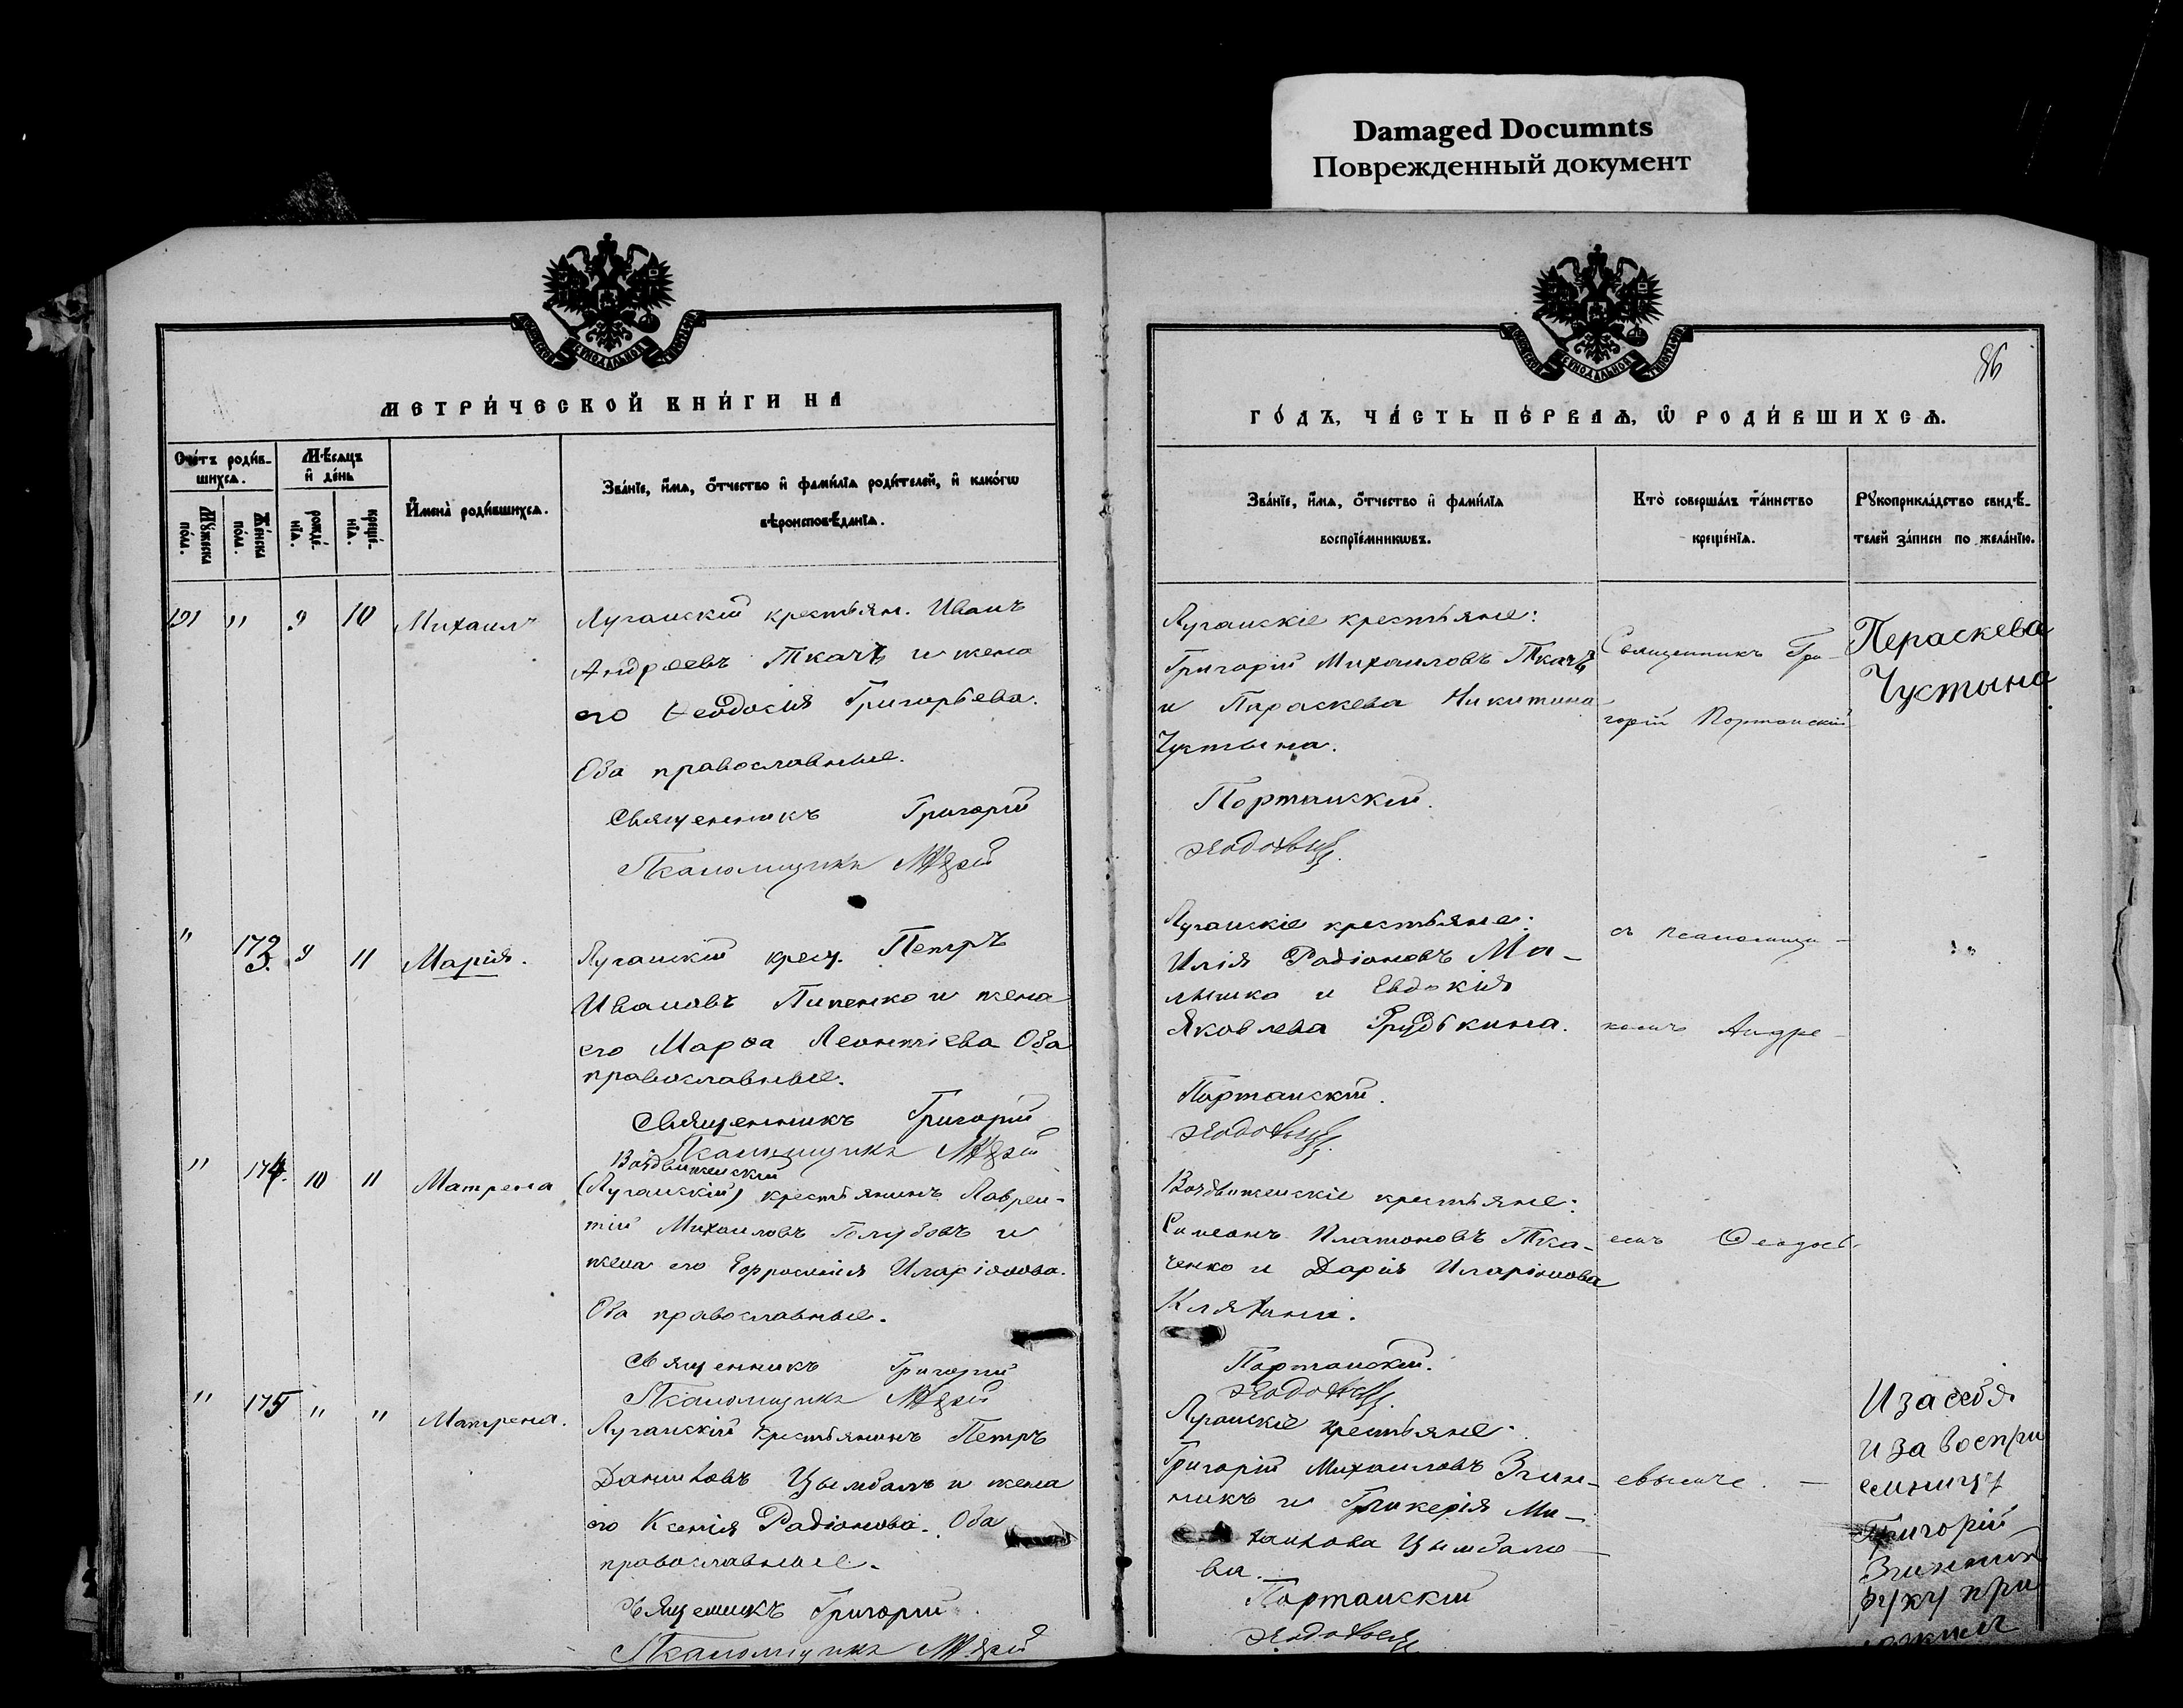 Damaged Documnts
Поврежденный документ
МЕТРИ́ЧЕСКОЙ КНИ́ГИ НА
Сче́тъ роди́в-
шихсѧ.
Мѣ́сѧцъ
и҆ де́нь
Мꙋ́жеска
по́ла.
Же́нска
по́ла.
рожде́-
нїѧ.
креще́-
нїѧ.
И҆мена̀ роди́вшихсѧ.
Зва́нїе, и҆́мѧ, ѻ҆́тчество и҆ фами́лїѧ роди́телей, и҆ како́гѡ
вѣроисповѣ́данїѧ.
191 " 9 10 Михаилъ
Луганскій крестьян. Иванъ
Андреевъ Ткачъ и жена
его Ѳеодосія Григорьева.
Оба православные.
Священникъ Григорій
" 173. 9 11 Марія.
Луганскій крест. Петръ
Ивановъ Пипенко и жена
его Марѳа Леонтіева Оба
православные.
Священникъ Григорій
" 174. 10 11 Матрена
Воздвиженскій
(Луганскій) крестьянинъ Лаврен-
тій Михаиловъ Голубовъ и
жена его Евфросинія Иларіонова.
Оба православные.
Священникъ Григорій
" 175 " " Матрена.
Луганскій крестьянинъ Петръ
Даниловъ Цымбалъ и жена
его Ксенія Радіонова. Оба
православные.
Священникъ Григорій
86
ГО́ДЪ, ЧА́СТЬ ПЕ́РВАѦ, Ѡ҆ РОДИ́ВШИХСѦ.
Зва́нїе, и҆́мѧ, ѻ҆́тчество и҆ фами́лїѧ
воспрїе́мникѡвъ.
Кто̀ соверша́лъ та́инство
креще́нїѧ.
Рꙋкоприкла́дство свидѣ́-
телей за́писи по жела́нїю.
Луганскіе крестьяне:
Григорій Михаиловъ Ткачъ
и Параскева Никитина
Чустына.
Портанскій.
Священникъ Гри-
горій Портанскій
Пераскева
Чустына
Луганскіе крестьяне:
Илія Радіоновъ Ма-
лышко и Евдокія
Яковлева Грудькина.
Портанскій.
съ псаломщи-
комъ Андре-
Воздвиженскіе крестьяне:
Симеонъ Платоновъ Тка-
ченко и Дарія Иларіонова
Портанскій.
емъ Ѳеодось-
Луганскіе крестьяне:
Григорій Михаиловъ Згин-
никъ и Гликерія Ми-
хаилова Цымбало-
ва.
Портанскій
евымъ. —
И за себя
и за воспри
емницу
Григорій
Згинник
руку при